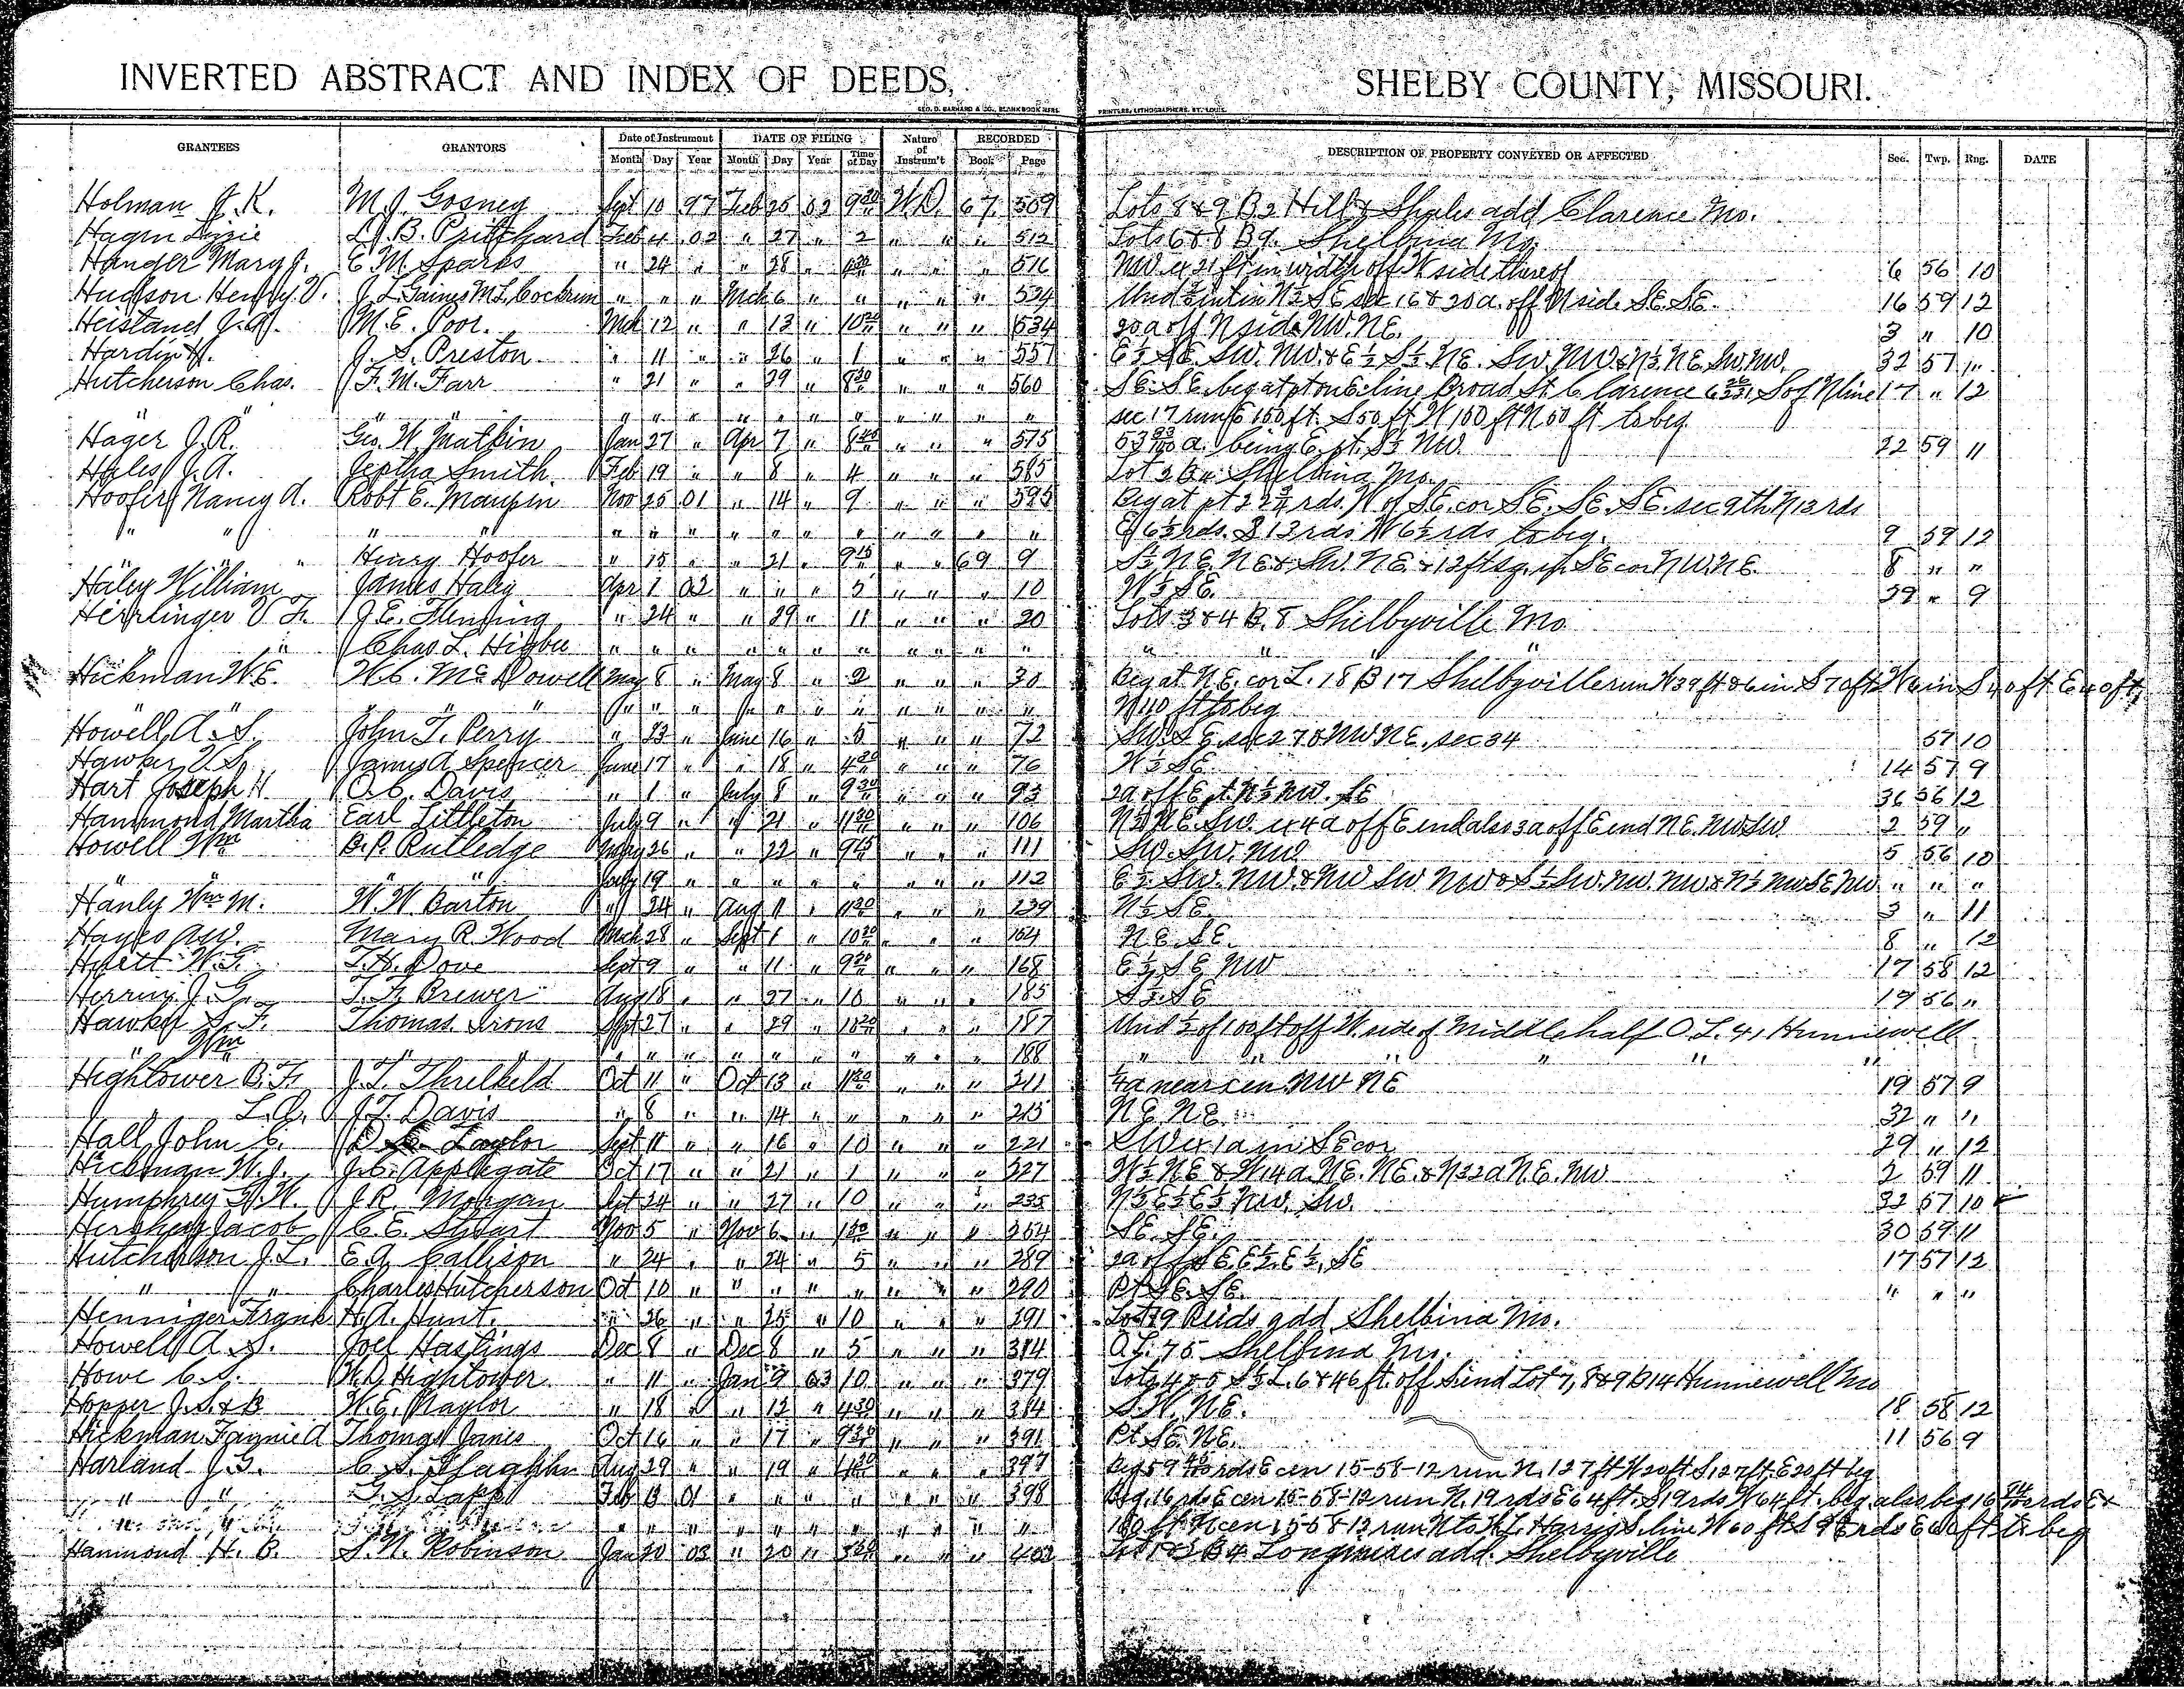 INVERTED ABSTRACT AND INDEX OF DEEDS, SHELBY COUNTY, MISSOURI.
GEO. D. BARNARD & CO., BLANK BOOK MFRS. PRINTERS, LITHOGRAPHERS, ST. LOUIS.
GRANTEES GRANTORS Date of Instrument DATE OF FILING Nature of Instrum't RECORDED DESCRIPTION OF PROPERTY CONVEYED OR AFFECTED Sec. Twp. Rng. DATE
Month Day Year Month Day Year Time of Day Book Page
Holman J. K. M. J. Gosney Sept 10 97 Feb 25 02 9 20 W.D. 67 509 Lots 8 & 9 B 2 Hill & Shules add Clarence Mo.
Hagen Lizzie L. J. B. Pritchard Feb 4 02 " 27 " 2 " " " 512 Lots 6 & 8 B 9. Shelbina Mo.
Hanger Mary J. E. M. Sparks " 24 " " 28 " " " " 516 NW. ex 21 ft in width off W side thereof 6 56 10
Hudson Henry V. J. L. Gaines M. L. Cockrum " " " Mch 6 " " " " " 524 Und ½ int in N½ SE sec 16 & 20 a. off N side SE SE. 16 59 12
Heistand J. A. M. E. Poor. Mch 12 " " 13 " 10 " " " 534 20 a off N side NW. NE. 3 " 10
Hardin H. J. S. Preston " 11 " " 26 " 1 " " " 557 E½ SE. SW. NW. & E½ S½ NE. SW. NW & N½ NE. SW. NW. 32 57 "
Hutcherson Chas. F. M. Farr " 21 " " 29 " 8 30 " " " 560 SE. SE. beg at pt on E. line Broad St. Clarence S of N line 17 " 12
" " " " " " " " " " " " " " " sec 17 run E 150 ft. S 50 ft W 150 ft N 50 ft to beg.
Hager J. R. Geo. W. Matkin Jan 27 " Apr 7 " " " " 575 53 a. being E. pt. S½ NW. 22 59 11
Hales J. A. Jeptha Smith. Feb 19 " " 8 " 4 " " " 585 Lot 2 B Shelbina Mo.
Hoofer Nancy A. Robt E. Maupin Nov 25 01 " 14 " 9 " " " 595 Beg at pt 22¾ rds. W of SE. cor SE. SE. SE. sec 9 th N 13 rds
" " " " " " " " " " " " " " E 6½ rds. S 13 rds W 6½ rds to beg. 9 59 12
" " " Henry Hoofer " 15 " " 21 " 9 15 " " 69 9 S½ NE. NE & SW. NE. & 12 ft sq. in SE cor NW. NE. 8 " "
Haley William James Haley Apr 1 02 " " " 5 " " " 10 W½ SE. 9
Herrlinger V. F. J. E. Fleming " 24 " " 29 " 11 " " " 20 Lots 3 & 4 B. 8 Shelbyville Mo
" Chas L. Higbee " " " " " " " " " " " " " "
Hickman W. E. W. C. McDowell May 8 " May 8 " 2 " " " 30 Beg at NE. cor L. 18 B 17 Shelbyville run W 39 ft & 6 in S 70 ft W 6 in S 40 ft E 40 ft
" " " " " " " " " " " " " " N 110 ft to beg
Howell A. S. John T. Perry " 23 " June 16 " 5 " " " 72 SW. SE. sec 27 & NW NE. sec 34 57 10
Hawker T. S. James A Spencer June 17 " " 18 " 4 20 " " " 76 W½ SE 14 57 9
Hart Joseph H O. C. Davis " 1 " July 8 " 9 30 " " " 93 2 a off E pt. N½ NW. SE 36 56 12
Hammond Martha Earl Littleton July 9 " " 21 " 11 30 " " " 106 N½ NE. SW. ex 4 a off E end also 3 a off E end NE. NW SW 2 59 "
Howell Wm B. P. Rutledge May 26 " " 22 " 9 15 " " " 111 SW. SW. NW 5 56 10
" " July 19 " " " " " " " " 112 E½ SW. NW. & NW SW NW & S½ SW. NW. NW & N½ NW SE NW. " " "
Hanly Wm M. W. W. Barton " 24 " Aug 11 " 11 30 " " " 139 N½ SE 3 " 11
Hayes A. W. Mary R. Wood Mch 28 " Sept 1 " 10 30 " " " 164 NE. SE. 8 " 12
Hulett W. G. T. H. Dove Sept 9 " " 11 " 9 30 " " " 168 E½ SE NW 17 58 12
Herrin J. G. T. F. Brewer Aug 18 " " 27 " 10 " " " 185 S½ SE 19 56 "
Hawker S. F. Thomas Irons Sept 27 " " 29 " " " " 187 Und ½ of 100 ft off W. side of Middle half O. L. 41 Hunnewell
" Wm " " " " " " " " " " 188 " " " " " "
Hightower B. F. J. T. Threlkeld Oct 11 " Oct 13 " 11 30 " " " 211 ¼ a near cen NW NE 19 57 9
" L. O. J. T. Davis " 8 " " 14 " " " " " 215 NE. NE 32 " "
Hall John C. D. C. Taylor Sept 11 " " 16 " 10 " " " 221 SW ex 1 a in SE cor 29 " 12
Hickman W. J. J. C. Applegate Oct 17 " " 21 " 1 " " " 227 W½ NE & W 14 a. NE. NE. & N 22 a NE. NW 2 59 11
Humphrey J. R. Morgan Sept 24 " " 27 " 10 " " " 235 N½ E½ E½ NW. SW. 32 57 10
Hershey Jacob C. E. Stuart Nov 5 " Nov 6 " 1 30 " " " 264 SE. SE. 30 59 11
Hutcherson J. L. E. A. Callison " 24 " " 24 " 5 " " " 289 2 a off SE E½ E½ SE 17 57 12
" " Charles Hutcherson Oct 10 " " " " " " " " 290 Pt SE. SE. " " "
Henniger Frank H. A. Hunt. " 26 " " 25 " 10 " " " 291 Lot 19 Reids add Shelbina Mo.
Howell A. S. Joel Hastings Dec 8 " Dec 8 " 5 " " " 314 O. L. 75 Shelbina Mo.
Howe C. S. W. D. Hightower " 11 " Jan 9 03 10 " " " 379 Lots 4 & 5 S½ L. 6 & 46 ft. off S end Lot 7, 8 & 9 B 14 Hunnewell Mo
Hopper J. S. & B W. E. Naylor " 18 " " 12 " 4 30 " " " 384 S. W. NE. 18 58 12
Hickman Fannie A Thomas Janes Oct 16 " " 17 " 9 30 " " " 391 Pt SE. NE. 11 56 9
Harland J. T. C. S. Aug 29 " " 19 " " " " 397 Beg 59 rds E cen 15-58-12 run N. 127 ft W 20 ft S. 127 ft. E 20 ft beg
" " T. S. Lapp Feb 13 01 " " " " " " " 398 Beg. 16 rds E cen 15-58-12 run N. 19 rds E 64 ft. S 19 rds W 64 ft. beg. also beg 16 rds E &
" " " " " " " " " " 150 ft. N cen 15-58-12 run N to W. J. Harris S. line W 60 ft S 9 rds E 60 ft to beg
Hammond H. B. S. N. Robinson Jan 20 03 " 20 " " " " 402 B 4 add. Shelbyville